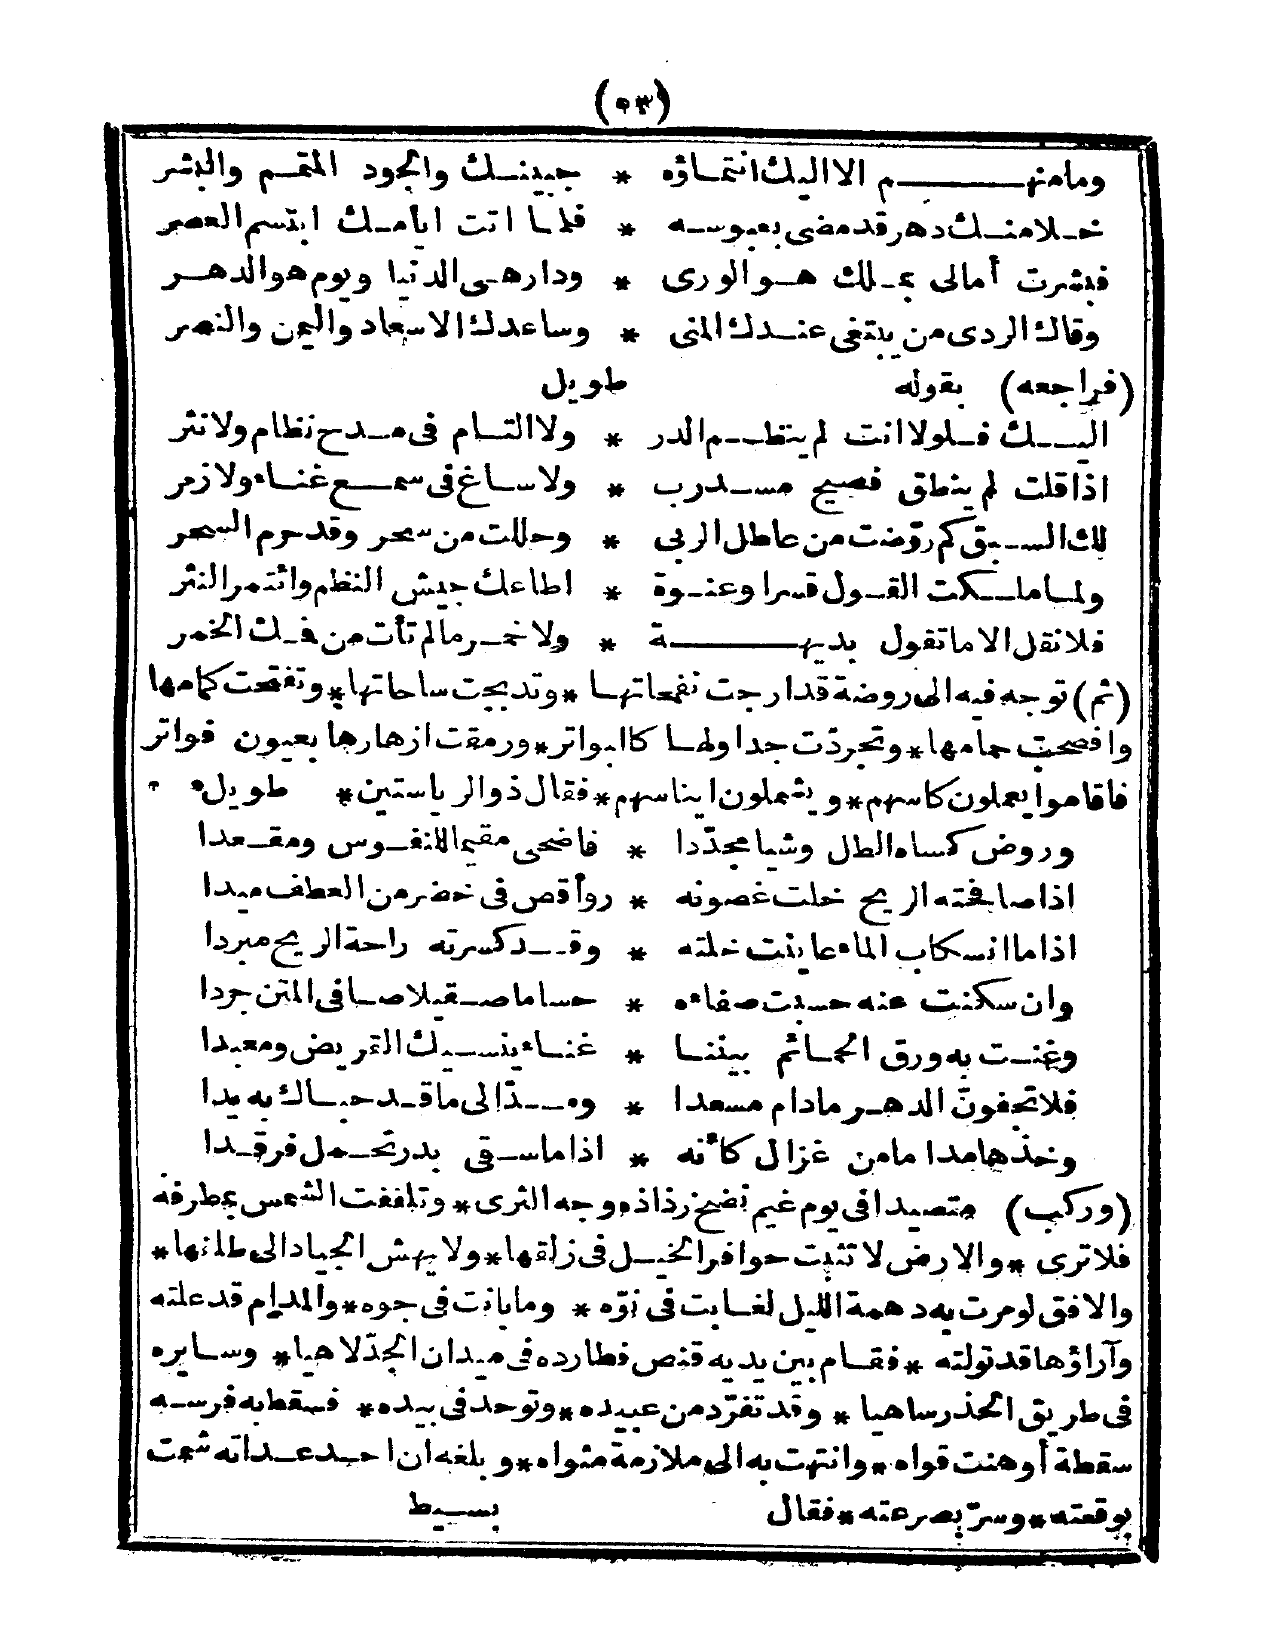 (٥٣)
ومامنهم الا اليك انتماؤه * جبينك والجود المتمم والبشر
خلامنك دهر قد مضى بعبوسه * فلما اتت ايامك ابتسم العصر
فبشرت أمالى بملك هو الورى * ودار هى الدنيا ويوم هو الدهر
وقاك الردى من يبتغى عندك المنى * وساعدك الاسعاد واليمن والنصر
(فراجعه) بقوله طويل
اليك فلولا انت لم ينتظم الدر * ولا التام فى مدح نظام ولا نثر
اذا قلت لم ينطق فصيح مسدرب * ولا ساغ فى سمع غناء ولا زمر
لك السبق كم روّضت من عاطل الربى * وحللت من سحر وقد حرم السحر
ولما ملكت القول قسرا وعنوة * اطاعك جيش النظم وائتمر النثر
فلا نقل الا ما تقول بديهة * ولا خمر مالم تأت من فك الخمر
(ثم) توجه فيه الى روضة قد ارجت نفحاتها * وتدبجت ساحاتها * وتفتحت كمامها
وافصحت حمامها * وتجردّت جداولها كالبواتر * ورمقت ازهارها بعيون فواتر
فاقاموا يعملون كاسهم * ويشملون ايناسهم * فقال ذوالرياستين * طويل
وروض كساه الطل وشيا مجدّدا * فاضحى مقيما للنفوس ومقعدا
اذا صافحته الريح خلت غصونه * رواقص فى خضر من العطف ميدا
اذا ما انسكاب الماء عاينت خلته * وقد كسرته راحة الريح مبردا
وان سكنت عنه حسبت صفاءه * حساما صقيلا صافى المتن جردا
وغنت به ورق الحمائم بيننا * غناء ينسيك القريض ومعبدا
فلا تجفونّ الدهر مادام مسعدا * ومدّ الى ما قد حباك به يدا
وخذها مداما من غزال كأنه * اذا ما سقى بدر تحمل فرقدا
(وركب) متصيدا فى يوم غيم نضح رذاذه وجه الثرى * وتلفقت الشمس بمطرفه
فلا ترى * والارض لا تثبت حوافر الخيل فى زلقها * ولا يهش الجياد الى طلقها *
والافق لو مرت به دهمة الليل لغابت فى نوّه * وما بانت فى جوه * والمدام قد علته
وآراؤها قد تولته * فقام بين يديه قنص فطارده فى ميدان الجدّ لاهيا * وسايره
فى طريق الحذر ساهيا * وقد تفرّد من عبيده * وتوحد فى بيده * فسقط به فرسه
سقطة أوهنت قواه * وانتهت به الى ملازمة مثواه * وبلغه ان احد عداته شمت
بوقعته * وسرّ بصرعته * فقال بسيط